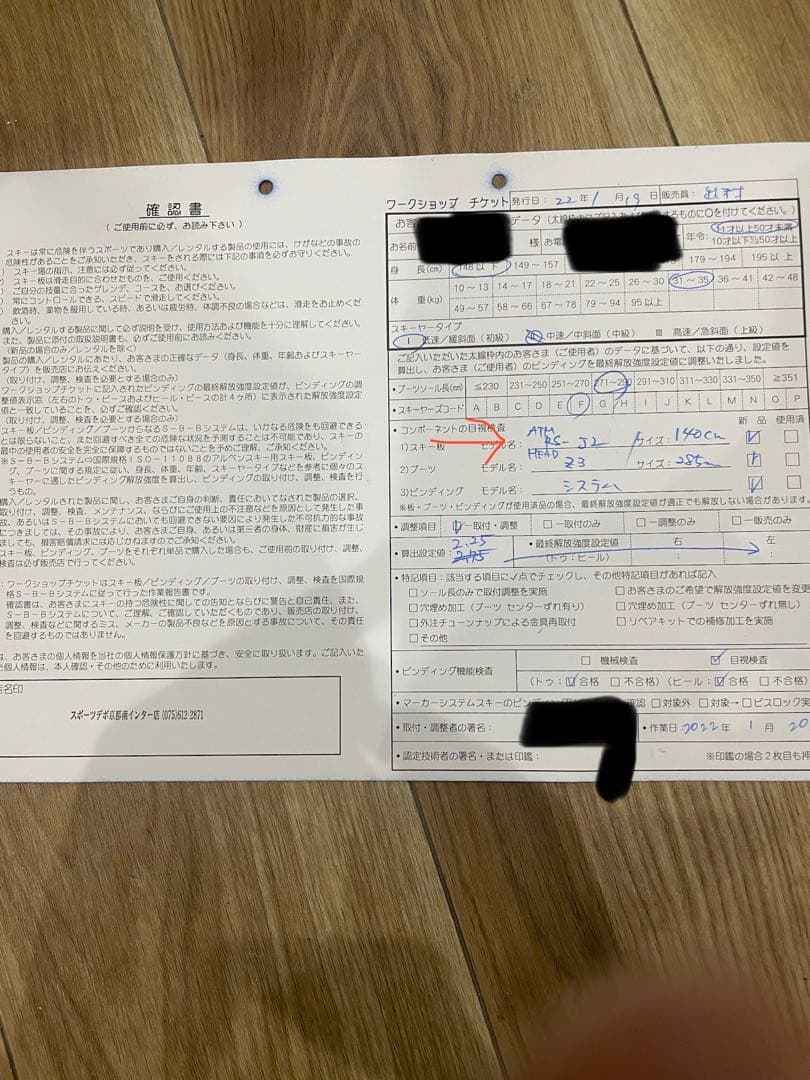 確認書
( ご使用前に必ず、お読み下さい )
スキーは常に危険を伴うスポーツであり購入／レンタルする製品の使用には、けがなどの事故
の危険性があることをご承知いただき、スキーをされる際には下記の事項を必ずお守りください。
) スキー場の指示、注意には必ず従ってください。
) スキー板は滑走目的に合わせたものを、ご使用ください。
) ご自分の技量に合ったゲレンデ、コースを、お選びください。
) 常にコントロールできる、スピードで滑走してください。
) 飲酒時、薬物を服用している時、あるいは疲労時、体調不良の場合などは、滑走をお止めくだ
さい。
購入／レンタルする製品に関して必ず説明を受け、使用方法および機能を十分に理解してください。
また、製品に添付の取扱説明書も、必ずご使用前にお読みください。
(新品の場合のみ／レンタルを除く)
製品の購入／レンタルにあたり、お客さまの正確なデータ（身長、体重、年齢およびスキーヤー
タイプ）を販売店にお伝えください。
(取り付け、調整、検査を必要とする場合のみ)
ワークショップチケットに記入されたビンディングの最終解放強度設定値が、ビンディングの調
整値表示窓（左右のトゥ・ピースおよびヒール・ピースの計４ヶ所）に表示された解放強度設定
値と一致していることを、必ずご確認ください。
(取り付け、調整、検査を必要とする場合のみ)
スキー板／ビンディング／ブーツからなるＳ－Ｂ－Ｂシステムは、いかなる危険をも回避できる
とは限らないこと、また回避すべき全ての危険な状況を予測することは不可能であり、スキーの
最中の使用者の安全を完全に保障するものではないことを予めご理解、ご承知ください。
※Ｓ－Ｂ－Ｂシステム⇨国際規格ＩＳＯ－１１０８８のアルペンスキー用スキー板、ビンディン
グ、ブーツに関する規定に従い、身長、体重、年齢、スキーヤータイプなどを参考に個々のス
キーヤーに適したビンディング解放強度を算出し、ビンディングの取り付け、調整、検査を行
うもの。
購入／レンタルされた製品に関し、お客さまご自身の判断、責任においてなされた製品の選択、
取り付け、調整、検査、メンテナンス、ならびにご使用上の不注意などを原因として発生した事
故、あるいはＳ－Ｂ－Ｂシステムにおいても回避できない要因により発生した不可抗力的な事故
につきましては、その事故により、お客さまご自身、あるいは第三者の身体、財産に損害が生じ
ましても、損害賠償請求には応じかねますのでご承知ください。
スキー板、ビンディング、ブーツをそれぞれ単品で購入した場合も、ご使用前の取り付け、調整、
検査は必ず販売店で行ってください。
：ワークショップチケットはスキー板／ビンディング／ブーツの取り付け、調整、検査を国際規
格Ｓ－Ｂ－Ｂシステムに従って行った作業報告書です。
確認書は、お客さまにスキーの持つ危険性に関しての告知とならびに警告と自己責任、また、
Ｓ－Ｂ－Ｂシステムについて、ご理解、ご承知していただくものであり、販売店の取り付け、
調整、検査などに関するミス、メーカーの製品不良などを原因とする事故について、その責任
を回避するものではありません。
は、お客さまの個人情報を当社の個人情報保護方針に基づき、安全に取り扱います。ご記入いた
個人情報は、本人確認・その他のために利用いたします。
店名印
スポーツデポ京都南インター店 (075)612-2871
ワークショップ チケット 発行日：22年1月19日 販売員：
データ（太線枠内
ものに○を付けてください。）
お名前 様 お電 年令： 11才以上50才未満
10才以下及50才以上
身 長(cm) 148以下 149～157 179～194 195以上
体 重(kg) 10～13 14～17 18～21 22～25 26～30 31～35 36～41 42～48
49～57 58～66 67～78 79～94 95以上
スキーヤータイプ
Ⅰ 低速／緩斜面（初級） Ⅱ 中速／中斜面（中級） Ⅲ 高速／急斜面（上級）
ご記入いただいた太線枠内のお客さま（ご使用者）のデータに基づいて、以下の通り、設定値
を算出し、お客さま（ご使用者）のビンディングを最終解放強度に調整いたしました。
・ブーツソール長(mm) ≦230 231～250 251～270 271～290 291～310 311～330 331～350 ≧351
・スキーヤーズコード A B C D E F G H I J K L M N O P
・コンポーネントの目視検査 新 品 使用済
1)スキー板 モデル名： ATM RS-J2 サイズ：140cm
2)ブーツ モデル名： HEAD Z3 サイズ：285mm
3)ビンディング モデル名： システム
※板・ブーツ・ビンディングが使用済品の場合、最終解放強度設定値が適正でも解放しない場合があります。
・調整項目 □－取付・調整 □－取付のみ □－調整のみ □－販売のみ
・算出設定値： 2.25 2.75 ・最終解放強度設定値 右 左
（トゥ：ヒール） ： ：
・特記項目：該当する項目に✓点でチェックし、その他特記項目があれば記入
□ ソール長のみで取付調整を実施 □ お客さまのご希望で解放強度設定値を変更
□ 穴埋め加工（ブーツ センターずれ有り） □ 穴埋め加工（ブーツ センターずれ無し）
□ 外注チューンナップによる金具再取付 □ リペアキットでの補修加工を実施
□ その他
・ビンディング機能検査 □ 機械検査 ☑ 目視検査
（トゥ：☑ 合格 □ 不合格）（ヒール：☑ 合格 □ 不合格）
・マーカーシステムスキーのビンディン 確認 □ 対象外 □ 対象→□ ビスロック実
・取付・調整者の署名： ・作業日：2022年 1月 20
・認定技術者の署名・または印鑑： ※印鑑の場合２枚目も押